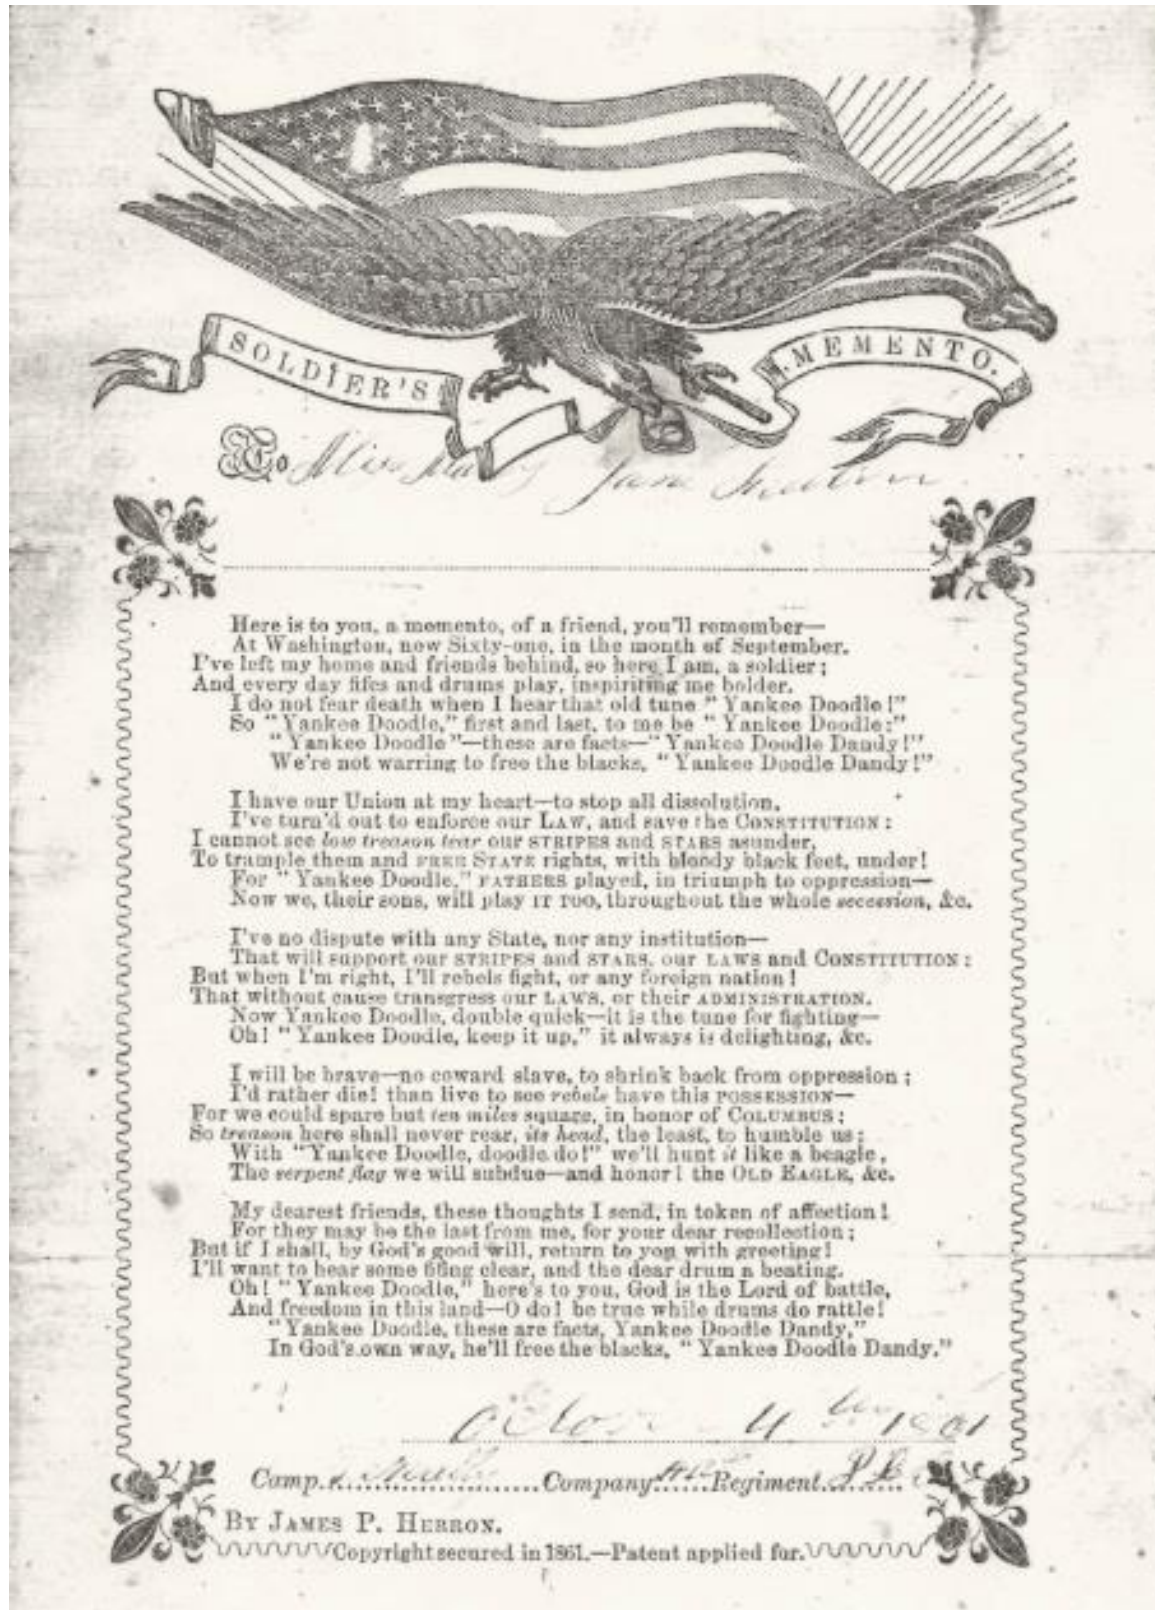 SOLDIER'S
MEMENTO.
To Miss Mary Jane
Here is to you, a momento, of a friend, you'll remember—
At Washington, now Sixty-one, in the month of September.
I've left my home and friends behind, so here I am, a soldier;
And every day fifes and drums play, inspiriting me bolder.
I do not fear death when I hear that old tune "Yankee Doodle!"
So "Yankee Doodle," first and last, to me be "Yankee Doodle:"
"Yankee Doodle"—these are facts—"Yankee Doodle Dandy!"
We're not warring to free the blacks, "Yankee Doodle Dandy!"
I have our Union at my heart—to stop all dissolution.
I've turn'd out to enforce our LAW, and save the CONSTITUTION:
I cannot see low treason tear our STRIPES and STARS asunder,
To trample them and FREE STATE rights, with bloody black feet, under!
For "Yankee Doodle," FATHERS played, in triumph to oppression—
Now we, their sons, will play IT TOO, throughout the whole secession, &c.
I've no dispute with any State, nor any institution—
That will support our STRIPES and STARS, our LAWS and CONSTITUTION:
But when I'm right, I'll rebels fight, or any foreign nation!
That without cause transgress our LAWS, or their ADMINISTRATION.
Now Yankee Doodle, double quick—it is the tune for fighting—
Oh! "Yankee Doodle, keep it up," it always is delighting, &c.
I will be brave—no coward slave, to shrink back from oppression;
I'd rather die! than live to see rebels have this POSSESSION—
For we could spare but ten miles square, in honor of COLUMBUS;
So treason here shall never rear, its head, the least, to humble us;
With "Yankee Doodle, doodle do!" we'll hunt it like a beagle,
The serpent flag we will subdue—and honor! the OLD EAGLE, &c.
My dearest friends, these thoughts I send, in token of affection!
For they may be the last from me, for your dear recollection;
But if I shall, by God's good will, return to you with greeting!
I'll want to hear some fifing clear, and the dear drum a beating.
Oh! "Yankee Doodle," here's to you, God is the Lord of battle,
And freedom in this land—O do! be true while drums do rattle!
"Yankee Doodle, these are facts, Yankee Doodle Dandy,"
In God's own way, he'll free the blacks, "Yankee Doodle Dandy."
4th 1861
Camp Company Regiment
BY JAMES P. HERRON.
Copyright secured in 1861.—Patent applied for.